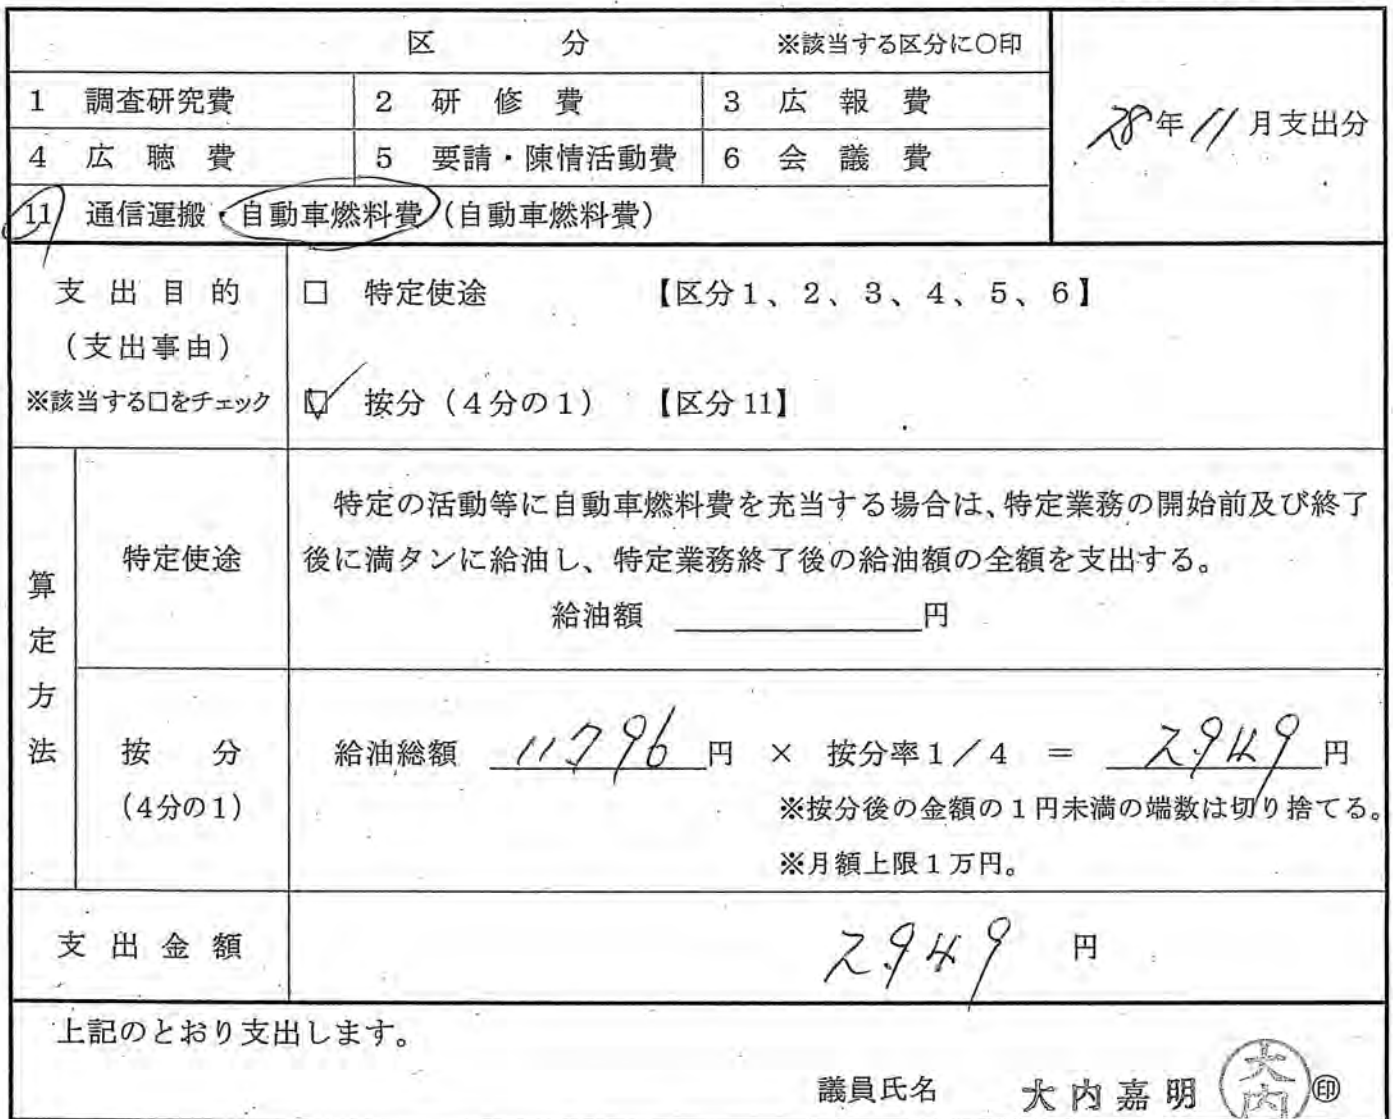 区 分 ※該当する区分に○印
28年11月支出分
1 調査研究費 2 研修費 3 広報費
4 広聴費 5 要請・陳情活動費 6 会議費
11 通信運搬・自動車燃料費(自動車燃料費)
支出目的
(支出事由)
※該当する□をチェック
□ 特定使途 【区分1、2、3、4、5、6】
☑ 按分(4分の1) 【区分11】
算定方法
特定使途
特定の活動等に自動車燃料費を充当する場合は、特定業務の開始前及び終了
後に満タンに給油し、特定業務終了後の給油額の全額を支出する。
給油額 円
按分
(4分の1)
給油総額 11,796 円 × 按分率1/4 = 2,949 円
※按分後の金額の1円未満の端数は切り捨てる。
※月額上限1万円。
支出金額 2,949 円
上記のとおり支出します。
議員氏名 大内嘉明 ㊞
大内